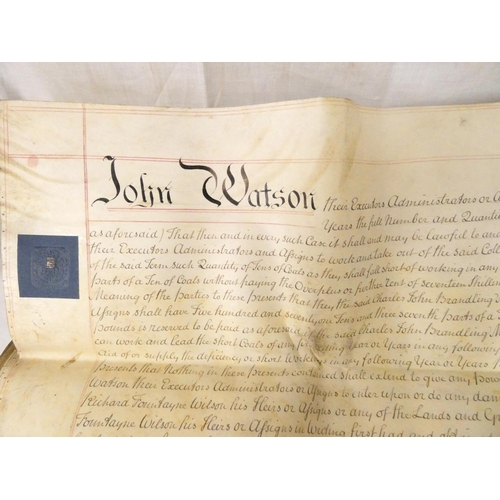 John Watson their Executors Administrators or A
Years the full Number and Quanti
as aforesaid) That then and in every such Case it shall and may be lawful to and
their Executors Administrators and Assigns to work and take out of the said Coll
of the said Term such Quantity of Tens of Coals as they shall fall short of working in any
parts of a Ten of Coals without paying the Overplus or further Rent of seventeen Shillin
Meaning of the Parties to these Presents that they the said Charles John Brandling
Assigns shall have Five hundred and seventy one Tens and three seventh parts of a T
Pounds is reserved to be paid as aforesaid the said Charles John Brandling
can work and lead the short Coals of any preceding Year or Years in any following
Case of or supply the deficiency or short Workings in any following Year or Years
Presents that nothing in these Presents contained shall extend to give any Pow
Watson their Executors Administrators or Assigns to enter upon or do any dam
Richard Fountayne Wilson his Heirs or Assigns or any of the Lands and
Fountayne Wilson his Heirs or Assigns in Writing first had and